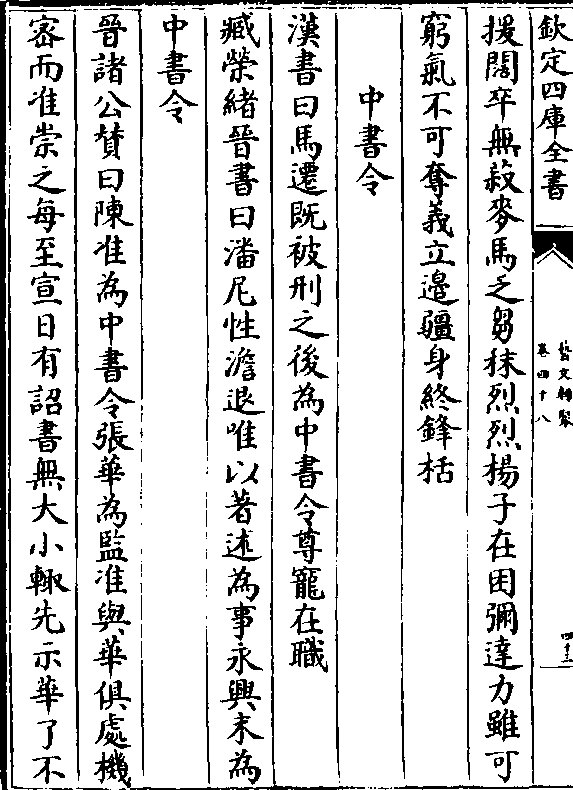 欽定四庫全書
藝文類聚
卷四十八
四十三
援闊卒無菽麥馬乏芻秣烈烈揚子在困彌達力雖可
窮氣不可奪義立邉疆身終鋒栝
中書令
漢書曰馬遷既被刑之後為中書令尊寵在職
臧榮緒晉書曰潘尼性澹退唯以著述為事永興末為
中書令
晉諸公賛曰陳准為中書令張華為監准與華俱處機
宻而准崇之每至宣日有詔書無大小輙先示華了不